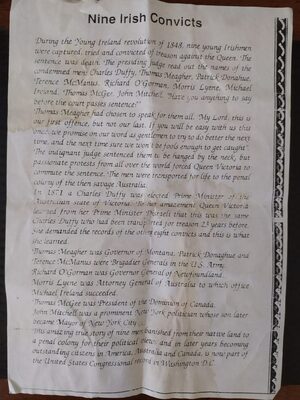 Nine Irish Convicts
During the Young Ireland revolution of 1848, nine young Irishmen
were captured, tried and convicted of treason against the Queen. The
sentence was death. The presiding judge read out the names of the
condemned men: Charles Duffy, Thomas Meagher, Patrick Donahue,
Terence McManus, Richard O'Gorman, Morris Lyene, Michael
Ireland, Thomas McGee, John Mitchel, "Have you anything to say
before the court passes sentence?"
Thomas Meagher had chosen to speak for them all. 'My Lord, this is
our first offence, but not our last. If you will be easy with us this
once, we promise on our word as gentlemen to try to do better the next
time, and the next time sure we won't be fools enough to get caught'.
The indignant judge sentenced them to be hanged by the neck, but
passionate protests from all over the world forced Queen Victoria to
commute the sentence. The men were transported for life to the penal
colony of the then savage Australia.
In 1871 a Charles Duffy was elected Prime Minister of the
Australian state of Victoria. To her amazement Queen Victoria
learned from her Prime Minister Disraeli that this was the same
Charles Duffy who had been transported for treason 23 years before.
She demanded the records of the other eight convicts and this is what
she learned.
Thomas Meagher was Governor of Montana, Patrick Donaghue and
Terence McManus were Brigadier Generals in the U.S. Army,
Richard O'Gorman was Governor General of Newfoundland,
Morris Lyene was Attorney General of Australia to which office
Michael Ireland succeeded.
Thomas McGee was President of the Dominion of Canada.
John Mitchell was a prominent New York politician whose son later
became Mayor of New York City.
This amazing true story of nine men banished from their native land to
a penal colony for their political and in later years becoming
outstanding citizens in America, Australia and Canada, is now part of
the United States Congressional record in Washington D.C.